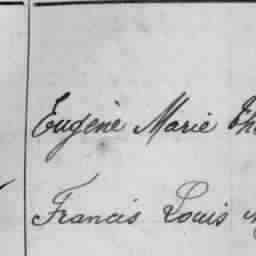 Eugène Marie
Francis Louis